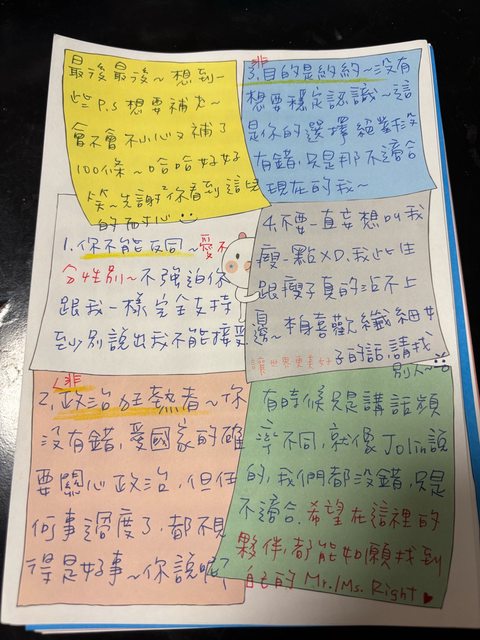 最後最後~想到一
些P.S想要補充~
會不會不小心又補了
100條~哈哈好好
笑~先謝²你看到這兒
的耐心
1.你不能反同~愛不
分性別~不強迫你
跟我一樣完全支持
至少別說出我不能接受
2.<非>政治狂熱者~你
沒有錯,愛國家的確
要關心政治,但任
何事過度了,都不見
得是好事~你說呢?
3.非目的是約約~沒有
想要穩定認識~這
是你的選擇絕對沒
有錯,只是那不適合
現在的我~
4.不要一直妄想叫我
瘦一點XD,我此生
跟瘦子真的沾不上
邊~本身喜歡纖細女
子的話,請找
別人~
讓世界更美好
有時候只是講話頻
率不同,就像Jolin說
的,我們都沒錯,只是
不適合.希望在這裡的
夥伴,都能如願找到
自己的Mr./Ms. Right